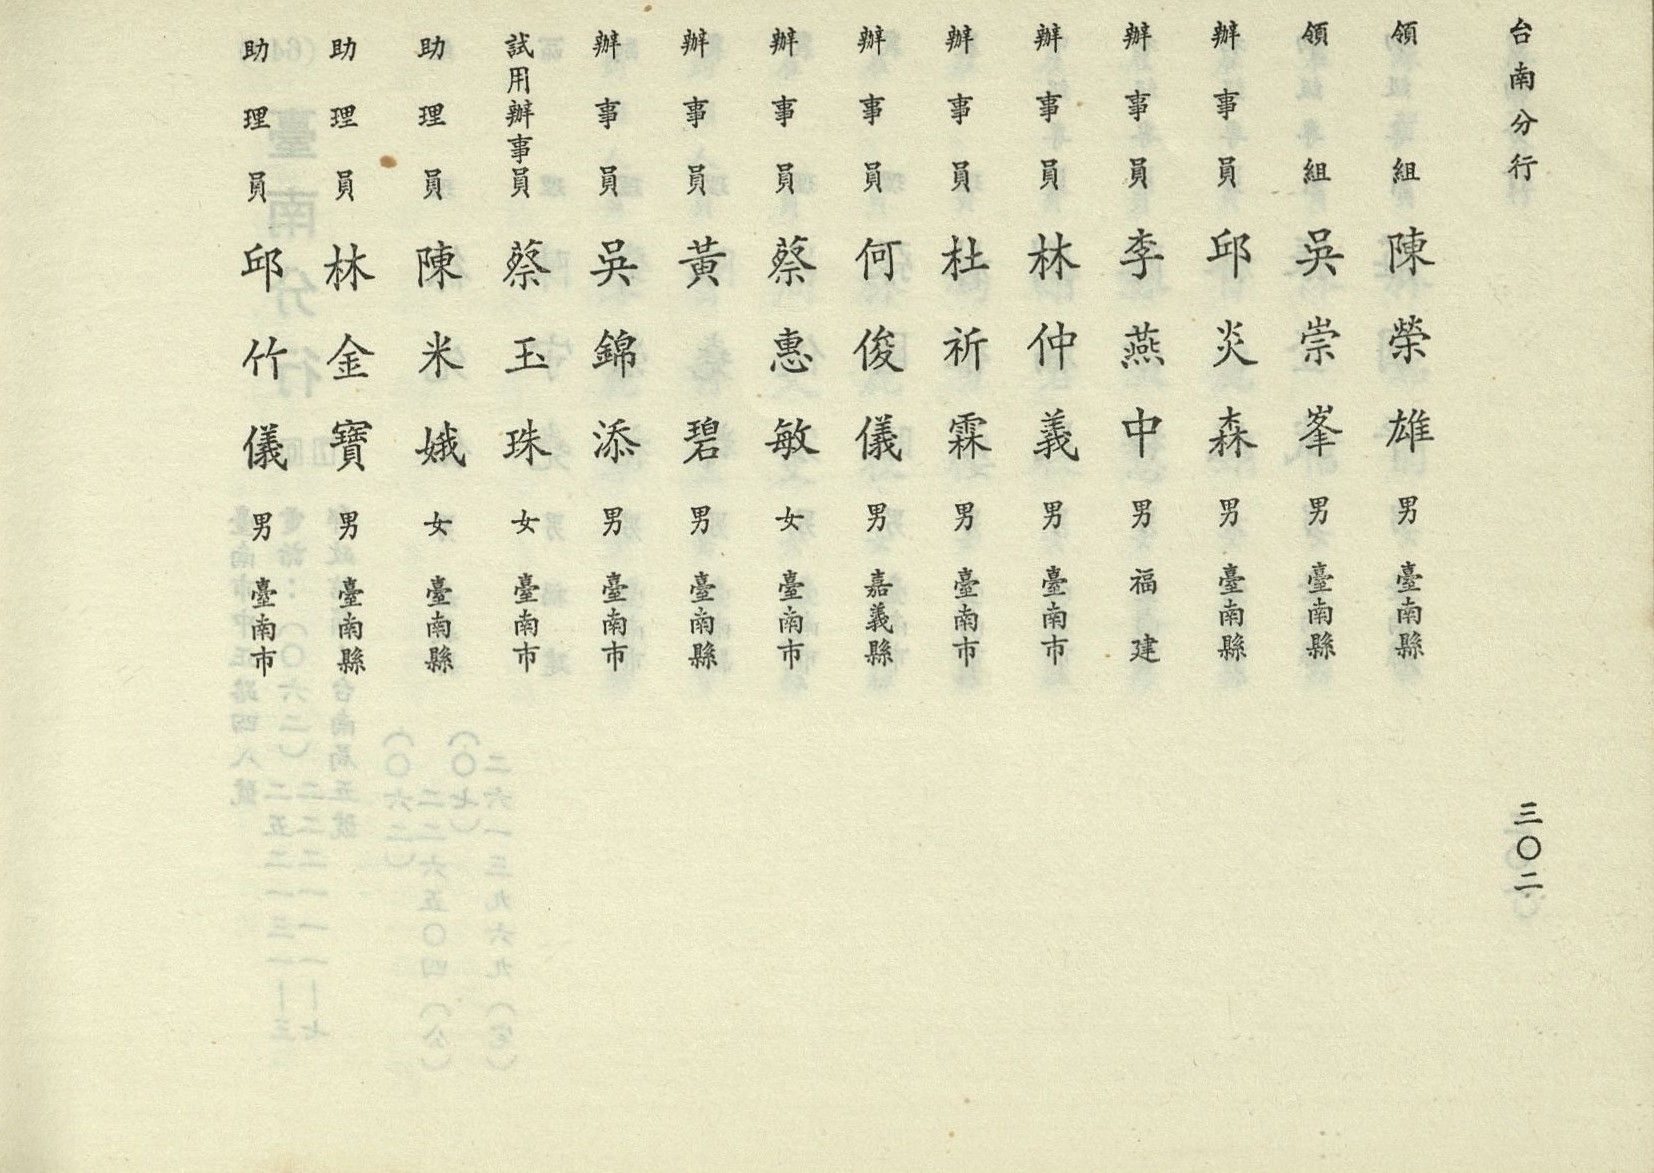 台南分行
三〇二
領組 陳榮雄 男 臺南縣
領組 吳崇峯 男 臺南縣
辦事員 邱炎森 男 臺南縣
辦事員 李燕中 男 福建
辦事員 林仲義 男 臺南市
辦事員 杜祈霖 男 臺南市
辦事員 何俊儀 男 嘉義縣
辦事員 蔡惠敏 女 臺南市
辦事員 黃碧 男 臺南縣
辦事員 吳錦添 男 臺南市
試用辦事員 蔡玉珠 女 臺南市
助理員 陳米娥 女 臺南縣
助理員 林金寶 男 臺南縣
助理員 邱竹儀 男 臺南市